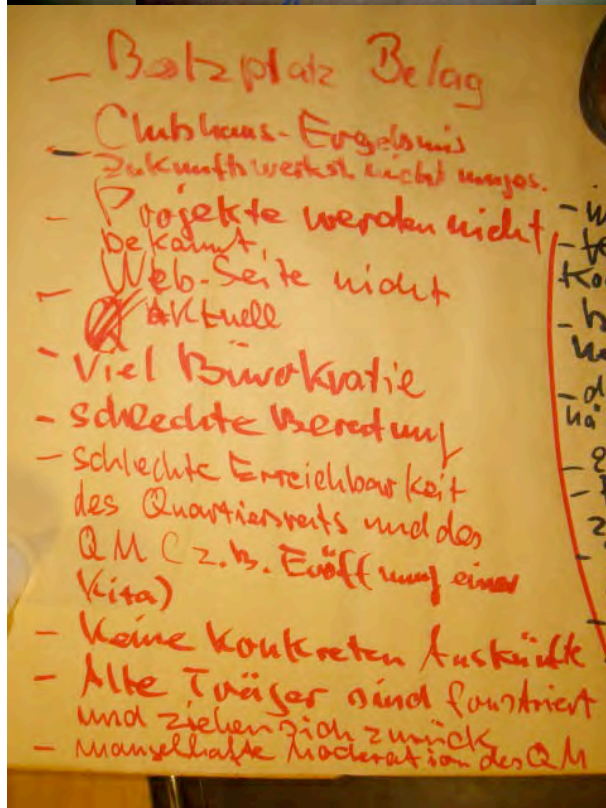 - Bolzplatz Belag
- Clubhaus-Ergebnis
Zukunftswerkst. nicht umges.
- Projekte werden nicht
bekannt,
- Web-Seite nicht
aktuell
- Viel Bürokratie
- schlechte Beratung
- schlechte Erreichbarkeit
des Quartiersrats und des
QM (z.B. Eröffnung einer
Kita)
- Keine konkreten Auskünfte
- Alte Träger sind frustriert
und ziehen sich zurück
- mangelhafte Moderation des QM